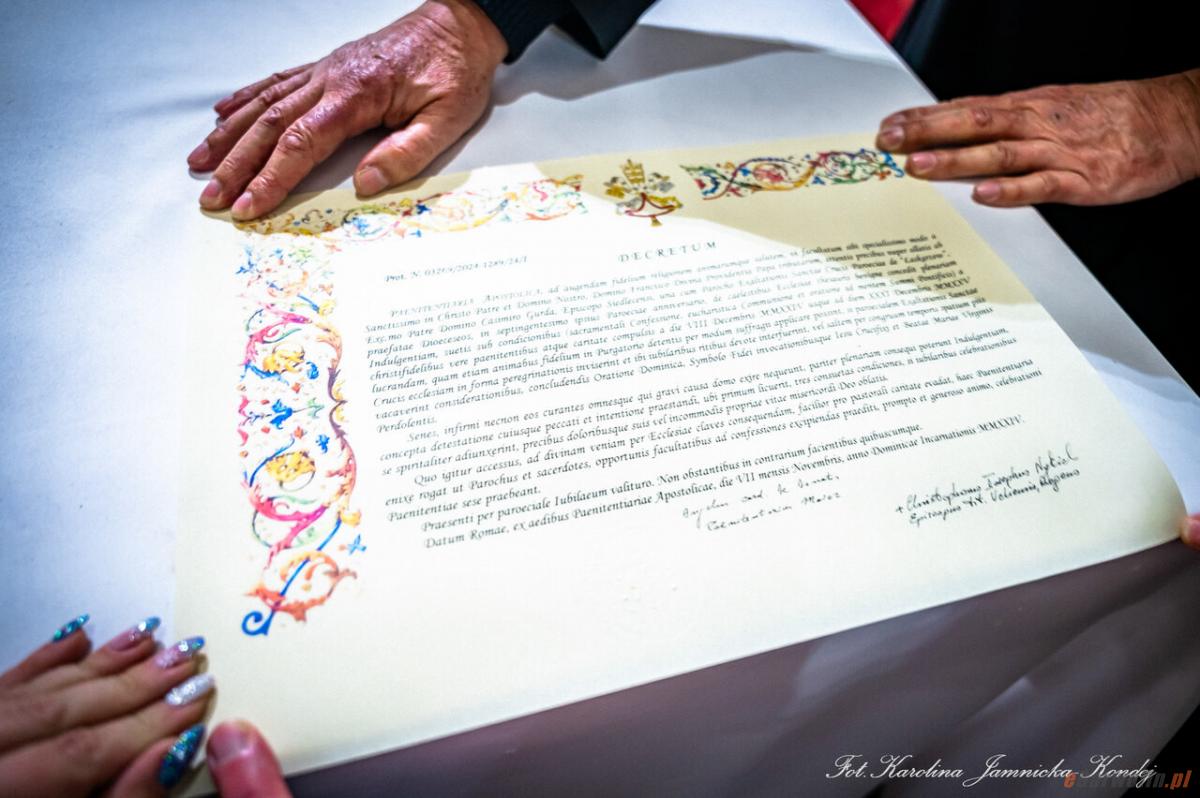 DECRETUM
Prot. N. 01269/2024-1289/24/I
PAENITENTIARIA APOSTOLICA, ad augendam fidelium religionem animarumque salutem, vi facultatum sibi specialissimo modo a
Sanctissimo in Christo Patre et Domino Nostro, Domino Francisco Divina Providentia Papa tributarum, attentis precibus nuper allatis ab
Exc.mo Patre Domino Casimiro Gurda, Episcopo Siedlecensi, una cum Parocho Exaltationis Sanctae Crucis Paroeciae de "Łaskarzew"
praefatae Dioeceseos, in septingentesimo ipsius Paroeciae anniversario, de caelestibus Ecclesiae thesauris benigne concedit plenariam
Indulgentiam, suetis sub condicionibus (sacramentali Confessione, eucharistica Communione et oratione ad mentem Summi Pontificis) a
christifidelibus vere paenitentibus atque caritate compulsis a die VIII Decembris MMXXIV usque ad diem XXXI Decembris MMXXV
lucrandam, quam etiam animabus fidelium in Purgatorio detentis per modum suffragii applicare possint, si paroecialem Exaltationis Sanctae
Crucis ecclesiam in forma peregrinationis inviserint et ibi iubilaribus ritibus devote interfuerint, vel saltem per congruum temporis spatium piis
vacaverint considerationibus, concludendis Oratione Dominica, Symbolo Fidei invocationibusque Iesu Crucifixi et Beatae Mariae Virginis
Perdolentis.
Senes, infirmi necnon eos curantes omnesque qui gravi causa domo exire nequeunt, pariter plenariam consequi poterunt Indulgentiam,
concepta detestatione cuiusque peccati et intentione praestandi, ubi primum licuerit, tres consuetas condiciones, si iubilaribus celebrationibus
se spiritaliter adiunxerint, precibus doloribusque suis vel incommodis propriae vitae misericordi Deo oblatis.
Quo igitur accessus, ad divinam veniam per Ecclesiae claves consequendam, facilior pro pastorali caritate evadat, haec Paenitentiaria
enixe rogat ut Parochus et sacerdotes, opportunis facultatibus ad confessiones excipiendas praediti, prompto et generoso animo, celebrationi
Paenitentiae sese praebeant.
Praesenti per paroeciale Iubilaeum valituro. Non obstantibus in contrarium facientibus quibuscumque.
Datum Romae, ex aedibus Paenitentiariae Apostolicae, die VII mensis Novembris, anno Dominicae Incarnationis MMXXIV.
Paenitentiarius Maior
+ Christophorus Iosephus Nykiel
Fot. Karolina Jamnicka Kondej